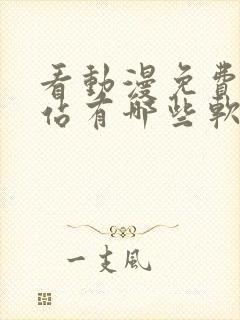 看動漫免費
佔有哪些軟
一支風